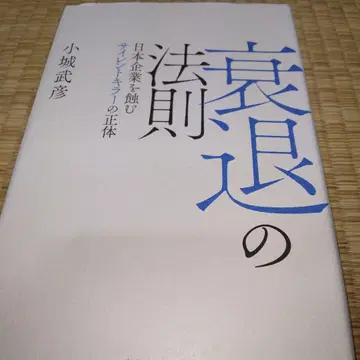 衰退の
法則
日本企業を蝕む
サイレントキラーの正体
小城武彦